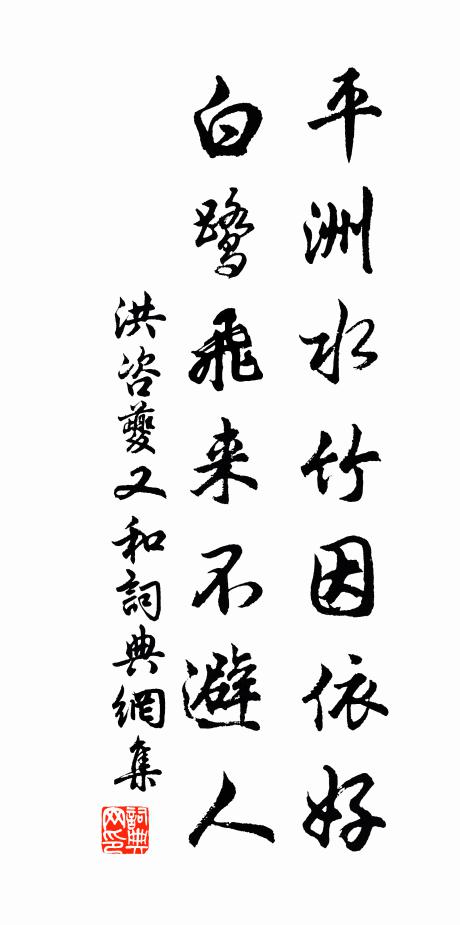 平洲水竹因依好
白鹭飛来不避人
洪咨夔又和詞典網集
詞典网印